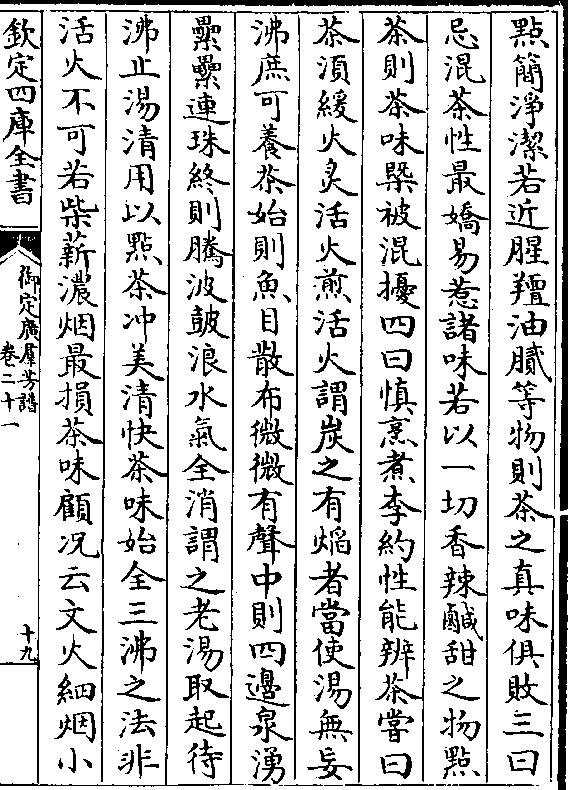 點簡淨潔若近腥羶油膩等物則茶之真味俱敗三曰
忌混茶性最嬌易惹諸味若以一切香辣鹹甜之物點
茶則茶味槩被混擾四曰慎烹煮李約性能辨茶嘗曰
茶湏緩火炙活火煎活火謂炭之有熖者當使湯無妄
沸庶可養茶始則魚目散布微微有聲中則四邊泉湧
纍纍連珠終則騰波皷浪水氣全消謂之老湯取起待
沸止湯清用以點茶冲美清快茶味始全三沸之法非
活火不可若柴薪濃烟最損茶味顧况云文火細烟小
欽定四庫全書
御定廣羣芳譜
卷二十一
十九